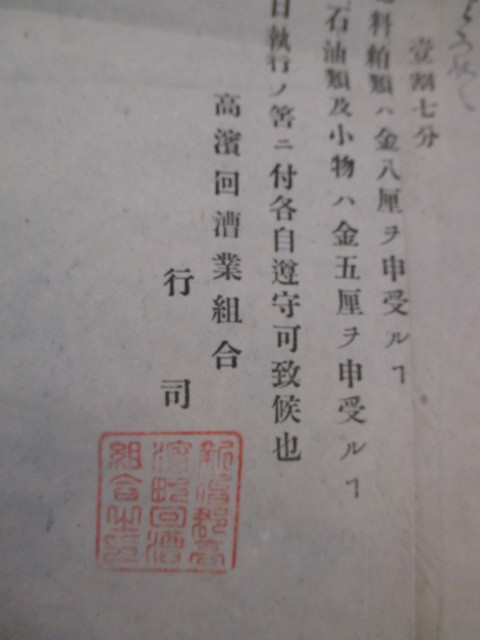 壹割七分
料粕類ハ金八厘ヲ申受ルヿ
石油類及小物ハ金五厘ヲ申受ルヿ
日執行ノ筈ニ付各自遵守可致候也
高濱回漕業組合
行司
新治郡高
濱町回漕
組合之印